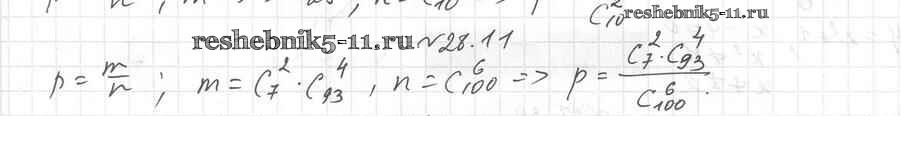 C²₁₀ reshebnik5-11.ru
reshebnik5-11.ru №28.11
p = m/n ; m = C₇² · C₉₃⁴ , n = C₁₀₀⁶ => p = (C₇² · C₉₃⁴)/C₁₀₀⁶ .